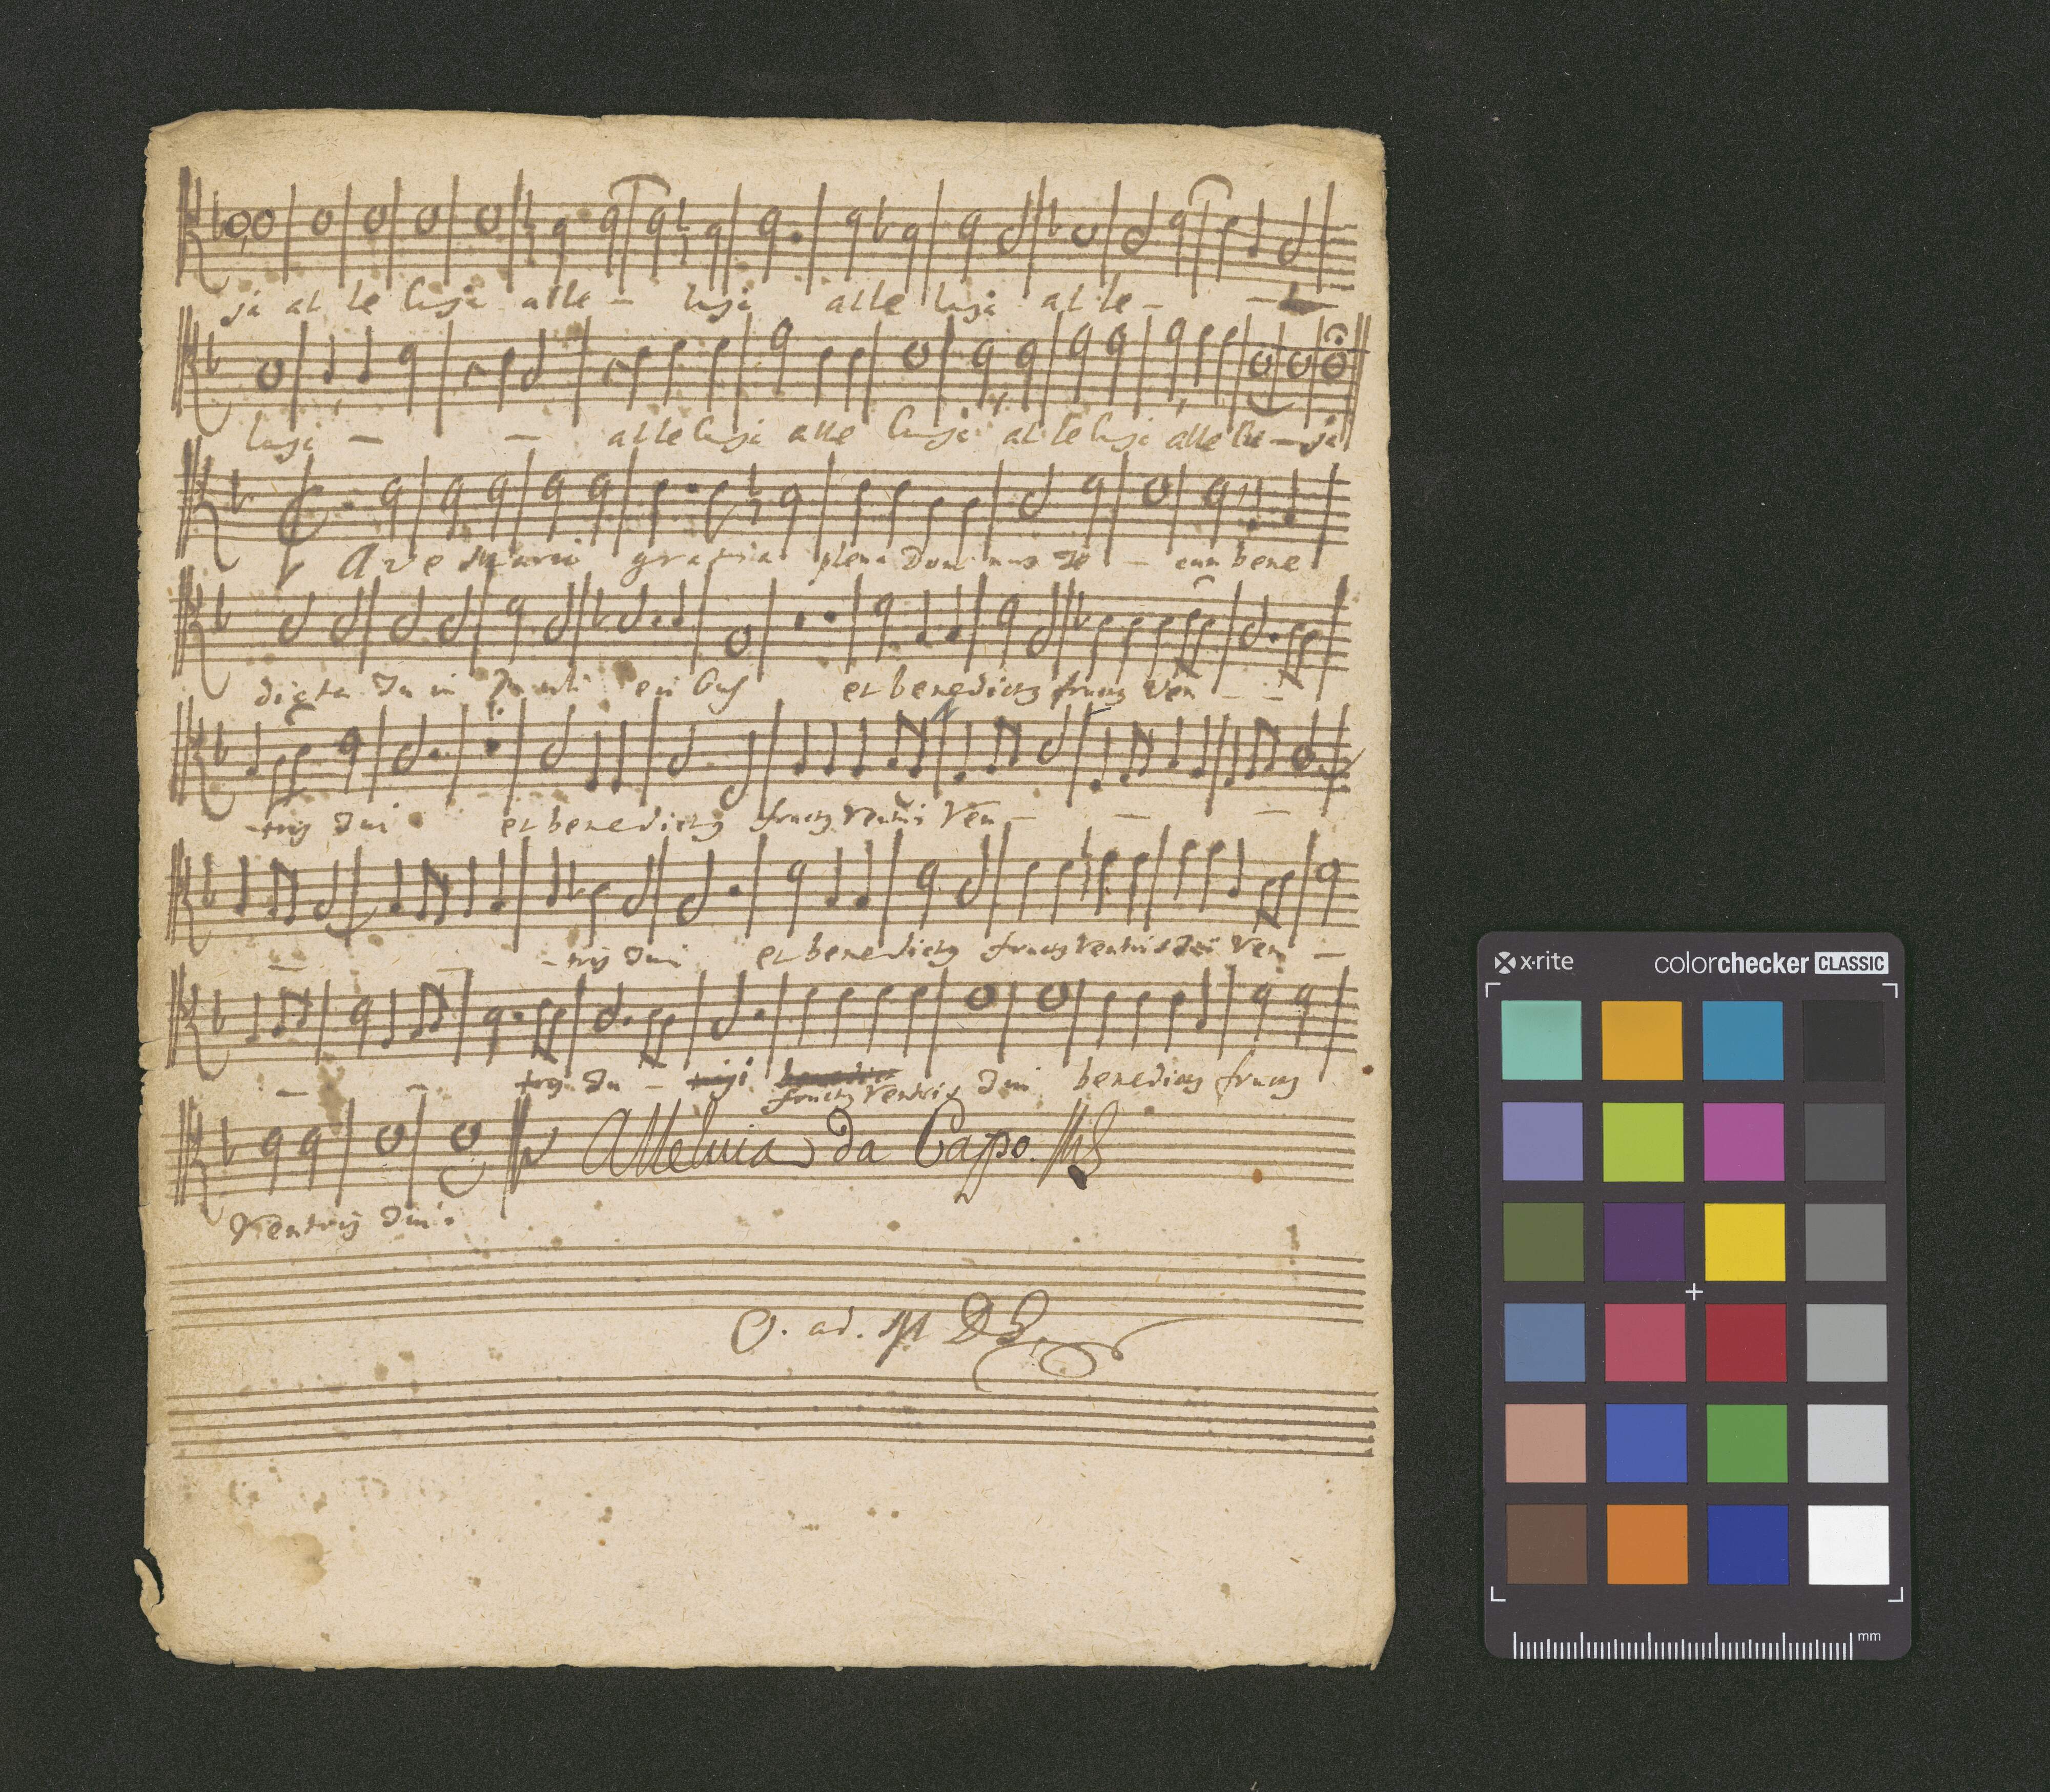 ja al le luja alle - luja alle luja al le - -
luja - - alle luja alle luja al le luja alle lu - ja
Ave Maria gratia plena Dominus te - cum bene
dicta Tu in eri bus et benedictꝫ fructꝫ Ven - -
-tris Tui et benedictꝫ fructꝫ Ventris Ven - - -
- -tris Tui et benedictꝫ fructꝫ Ventris Tui Ven -
- - tris Tu - i fructꝫ Ventris Tui benedictꝫ fructꝫ
Ventris Tui.
Alleluia da Cappo.
O. ad. M D
x·rite colorchecker CLASSIC
mm